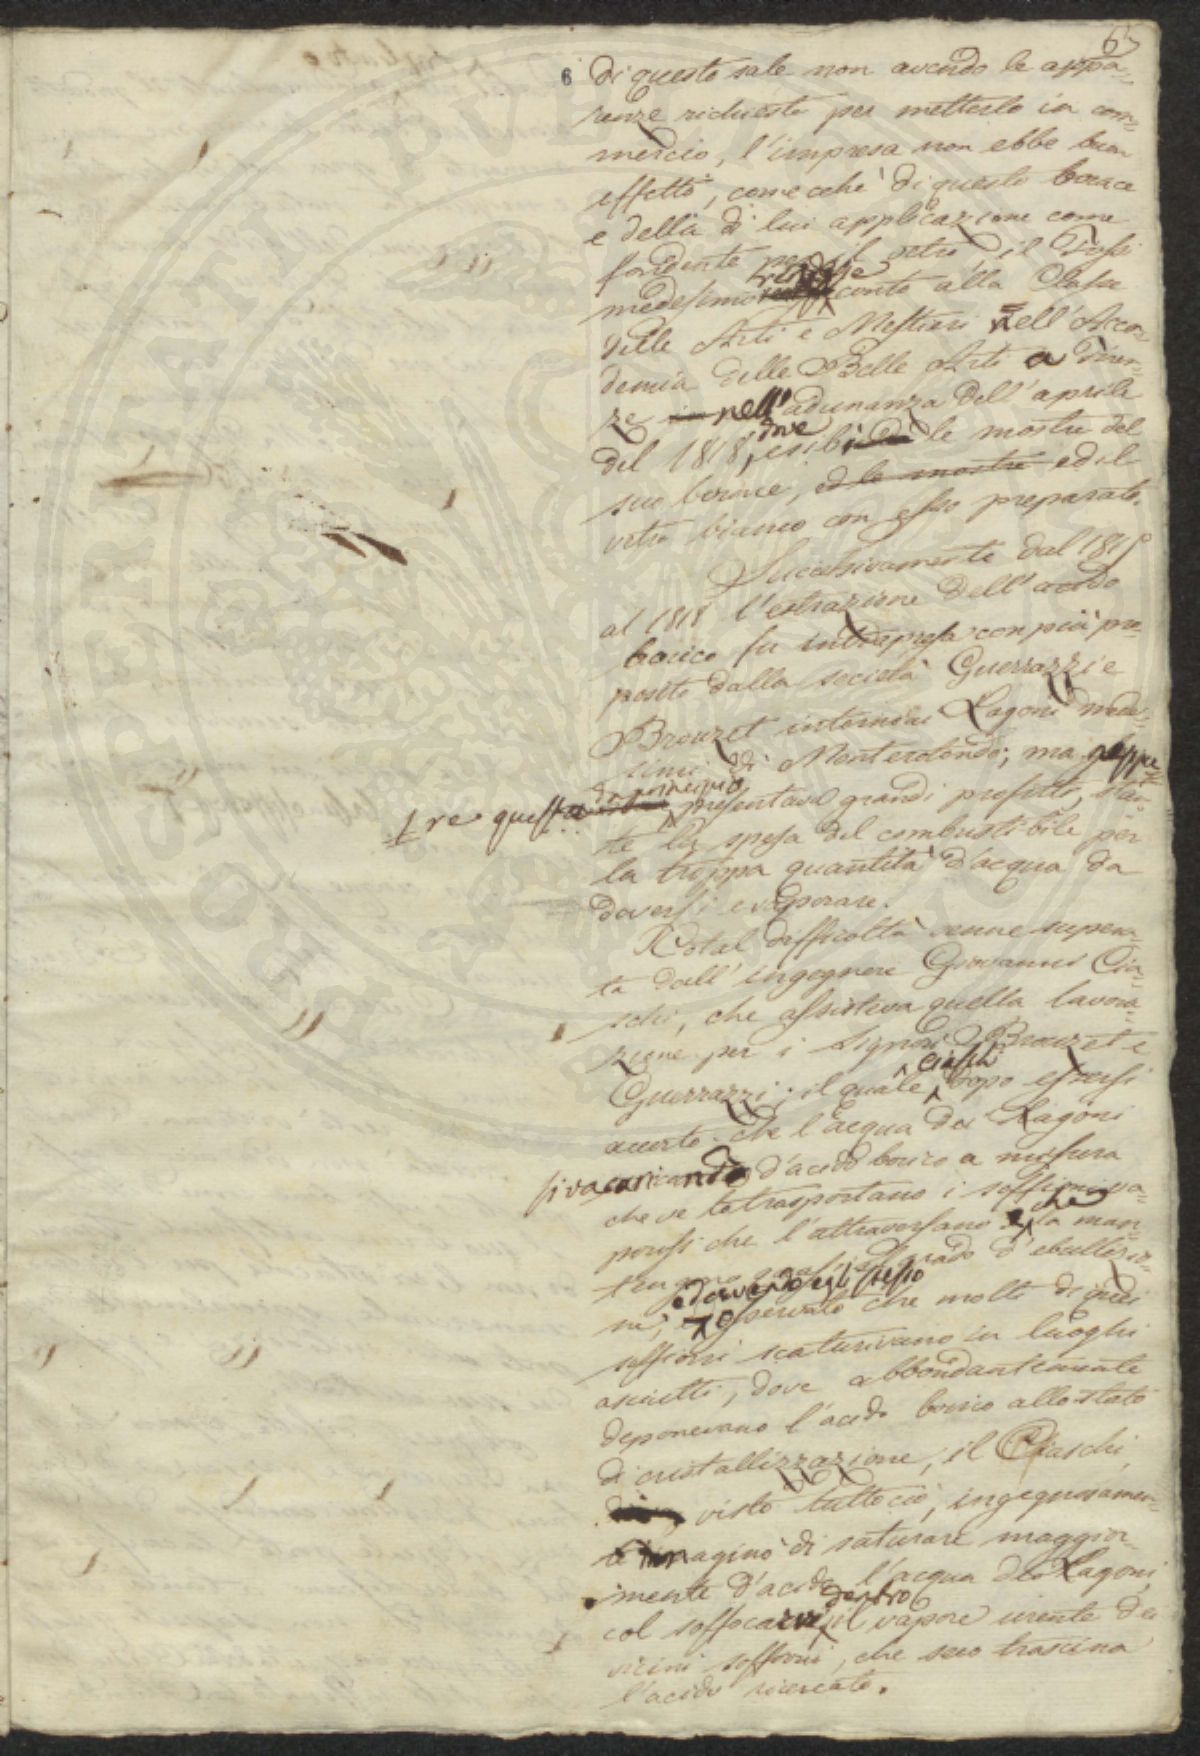 65
6 di questo sale non avendo le appa=
renze richieste per metterlo in com=
mercio, l'impresa non ebbe buon
effetto, comecchè di questo borace
e della di lui applicazione come
fondente per il vetro, il Tossi
medesimo rendesse conto alla Classe
delle Arti e Mestieri nell'Acca=
demia delle Belle Arti a Firen=
ze nell'adunanza dell'aprile
del 1818, dove esibì le mostre del
suo borace, ed le mostre ed il
vetro bianco con esso preparato.
Successivamente dal 1815
al 1818 l'estrazione dell'acido
borico fu intrapresa con più pro=
posito dalla società Guerrazzi e
Brouzet intorno ai Lagoni mede=
simi di Monterotondo; ma neppu=
re questa da principio presentava grandi profitti, stan=
te la spesa del combustibile per
la troppa quantità d'acqua da
doversi evaporare.
Cotal difficoltà venne supera=
ta dall'ingegnere Giovanni Cia=
schi, che assisteva quella lavora=
zione per i Signori Brouzet e
Guerrazzi; il quale Ciaschi dopo essersi
accorto che l'acqua dei Lagoni
si va caricando d'acido borico a misura
che ve lo trasportano i soffioni va=
porosi che l'attraversano e che la man=
tengono quasi al grado d'ebullizio=
ne, ed avendo egli stesso osservato che molti di quei
soffioni scaturivano in luoghi
asciutti, dove abbondantemente
deponevano l'acido borico allo stato
di cristallizzazione, il Ciaschi,
visto tutto ciò, ingegnosamen=
te immaginò di saturare maggior=
mente d'acido l'acqua dei Lagoni
col soffocarvi dentro il vapore urente dei
vicini soffioni, che seco trascina
l'acido ricercato.